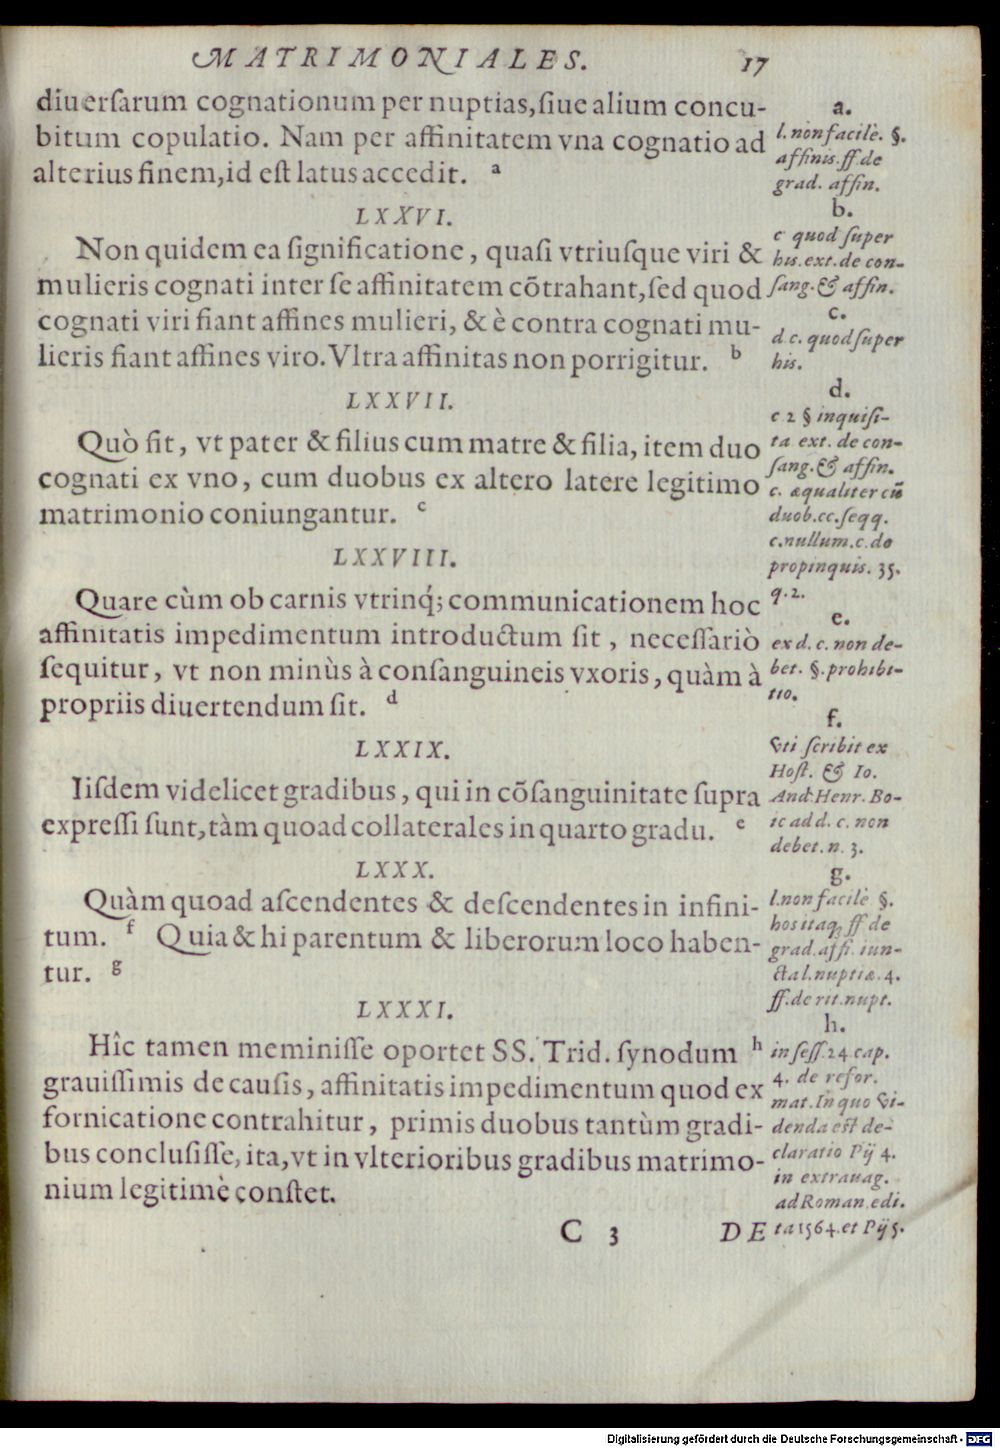 MATRIMONIALES. 17
diuersarum cognationum per nuptias, siue alium concu-
bitum copulatio. Nam per affinitatem vna cognatio ad
alterius finem, id est latus accedit. a
LXXVI.
Non quidem ea significatione, quasi vtriusque viri &
mulieris cognati inter se affinitatem cõtrahant, sed quod
cognati viri fiant affines mulieri, & è contra cognati mu-
lieris fiant affines viro. Vltra affinitas non porrigitur. b
LXXVII.
Quò fit, vt pater & filius cum matre & filia, item duo
cognati ex vno, cum duobus ex altero latere legitimo
matrimonio coniungantur. c
LXXVIII.
Quare cùm ob carnis vtrinq́; communicationem hoc
affinitatis impedimentum introductum sit, necessariò
sequitur, vt non minùs à consanguineis vxoris, quàm à
propriis diuertendum sit. d
LXXIX.
Iisdem videlicet gradibus, qui in cõsanguinitate supra
expressi sunt, tàm quoad collaterales in quarto gradu. e
LXXX.
Quàm quoad ascendentes & descendentes in infini-
tum. f Quia & hi parentum & liberorum loco haben-
tur. g
LXXXI.
Hîc tamen meminisse oportet SS. Trid. synodum h
grauissimis de causis, affinitatis impedimentum quod ex
fornicatione contrahitur, primis duobus tantùm gradi-
bus conclusisse, ita, vt in vlterioribus gradibus matrimo-
nium legitimè constet.
C 3 DE
a.
l. non facilè. §.
affinis. ff. de
grad. affin.
b.
c quod super
his. ext. de con-
sang. & affin.
c.
d. c. quod super
his.
d.
c 2 § inquisi-
ta ext. de con-
sang. & affin.
c. æqualiter cũ
duob. cc. seqq.
c. nullum. c. de
propinquis. 35.
q. 2.
e.
ex d. c. non de-
bet. §. prohibi-
tio.
f.
Vti scribit ex
Host. & Io.
And. Henr. Bo-
ic ad d. c. non
debet. n. 3.
g.
l. non facilè §.
hos itaq; ff de
grad. affi. iun-
cta l. nuptiæ. 4.
ff. de rit. nupt.
h.
in sess. 24 cap.
4. de refor.
mat. In quo vi-
denda est de-
claratio Pij 4.
in extrauag.
ad Roman. edi.
ta 1564. et Pij 5.
Digitalisierung gefördert durch die Deutsche Forschungsgemeinschaft - DFG